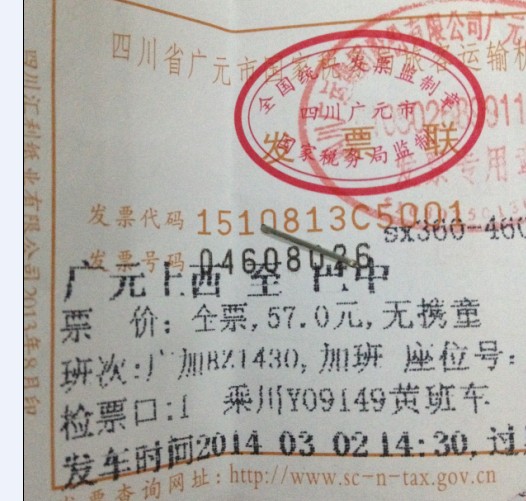 四川省广元市国家税
旅客运输
全国统一发票监制章
四川广元市
国家税务局监制
发票联
有限公司广元
专用章
发票代码 1510813C5001
sx360-460
发票号码 04608026
广元上西 至 巴中
票 价: 全票,57.0元,无携童
班次:广加BZ1430, 加班 座位号:
检票口:1 乘川Y09149黄班车
发车时间2014 03 02 14:30,过
发票查询网址: http://www.sc-n-tax.gov.cn
四川汇利纸业有限公司2013年8月印